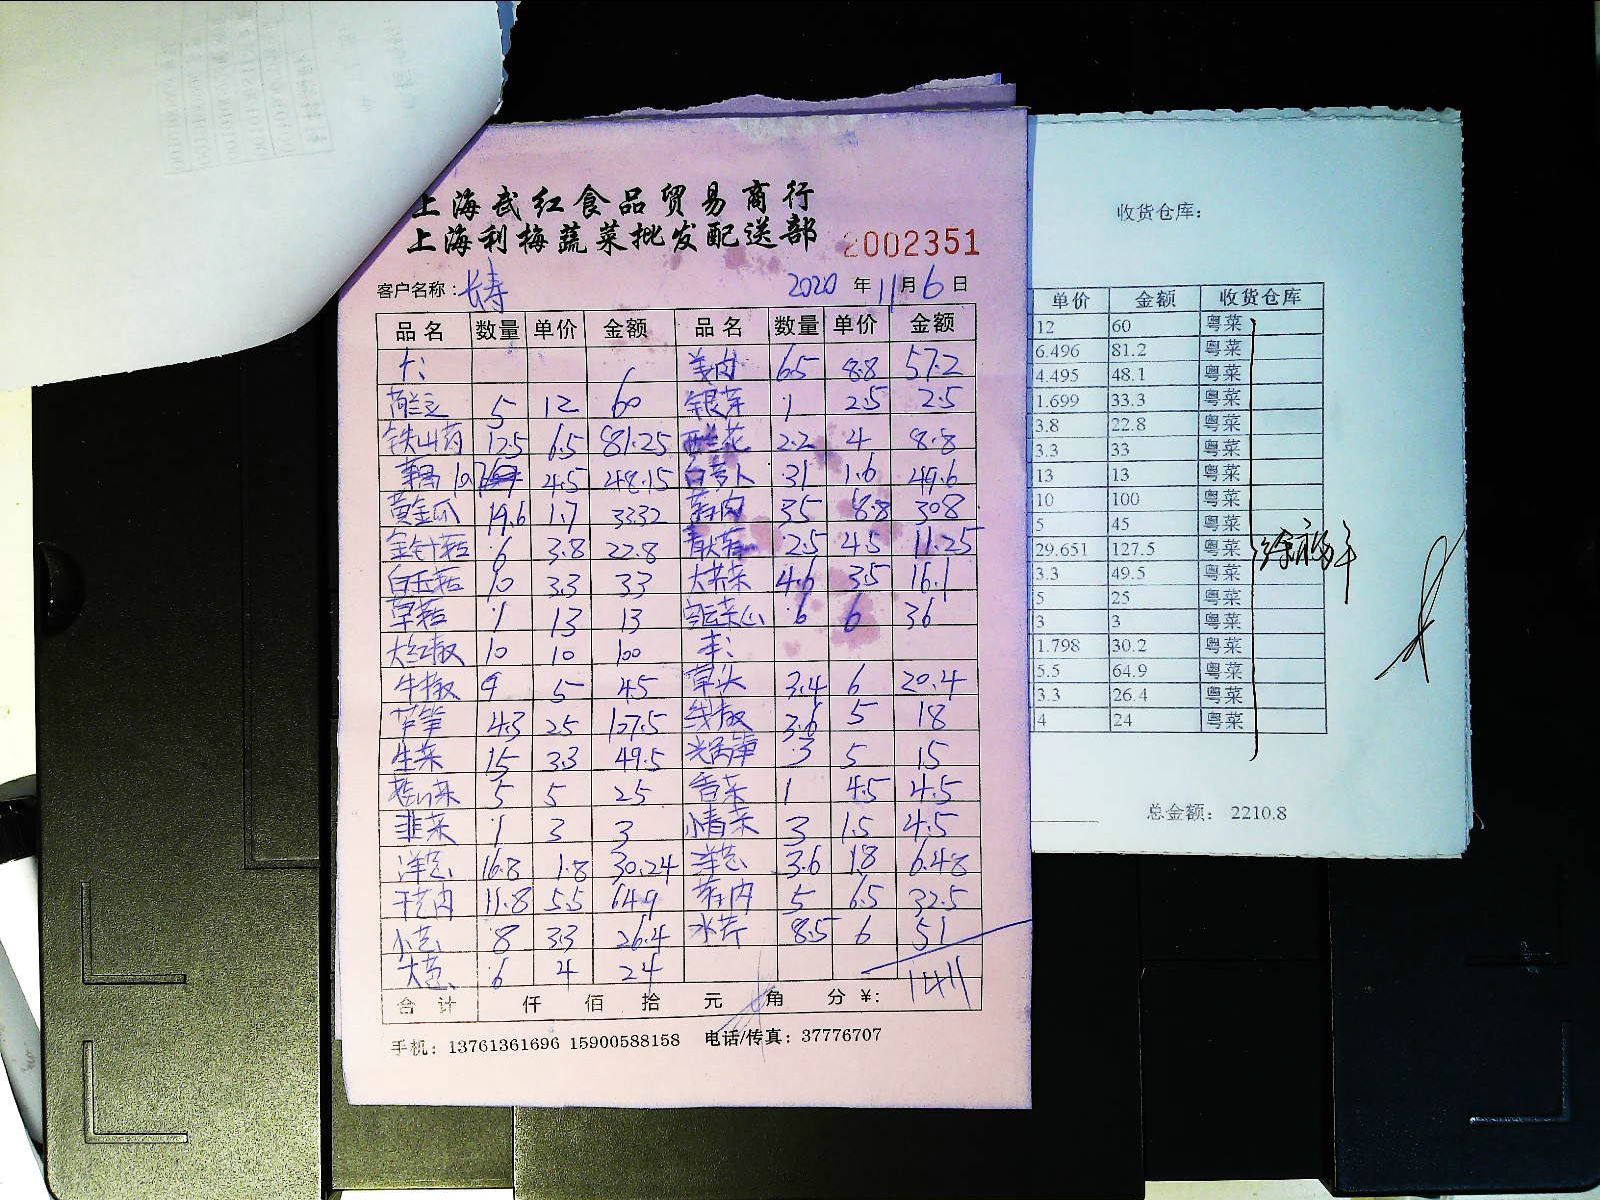 上海武红食品贸易商行
上海利梅蔬菜批发配送部
2002351
客户名称：长寿 2020 年 11 月 6 日
品名 数量 单价 金额 品名 数量 单价 金额
大: 羊肉 6.5 8.8 57.2
5 12 60 银芽 1 2.5 2.5
铁山药 12.5 6.5 81.25 西兰花 2.2 4 8.8
4.5 48.15 白萝卜 31 1.6 49.6
黄金瓜 19.6 1.7 33.32 35 8.8 308
金针菇 6 3.8 22.8 2.5 4.5 11.25
白玉菇 10 3.3 33 大芥菜 4.6 3.5 16.1
草菇 1 13 13 菜心 6 6 36
大红椒 10 10 100 本:
牛椒 9 5 45 草头 3.4 6 20.4
芦笋 4.3 25 107.5 线椒 3.6 5 18
生菜 15 3.3 49.5 3 5 15
5 5 25 香菜 1 4.5 4.5
韭菜 1 3 3 小青菜 3 1.5 4.5
洋葱 16.8 1.8 30.24 洋葱 3.6 1.8 6.48
11.8 5.5 64.9 5 6.5 32.5
小葱 8 3.3 26.4 水芹 8.5 6 51
大葱 6 4 24
合计 仟 佰 拾 元 角 分 ¥:
手机：13761361696 15900588158 电话/传真：37776707
收货仓库：
单价 金额 收货仓库
12 60 粤菜
6.496 81.2 粤菜
4.495 48.1 粤菜
1.699 33.3 粤菜
3.8 22.8 粤菜
3.3 33 粤菜
13 13 粤菜
10 100 粤菜
5 45 粤菜
29.651 127.5 粤菜
3.3 49.5 粤菜
5 25 粤菜
3 3 粤菜
1.798 30.2 粤菜
5.5 64.9 粤菜
3.3 26.4 粤菜
4 24 粤菜
总金额：2210.8